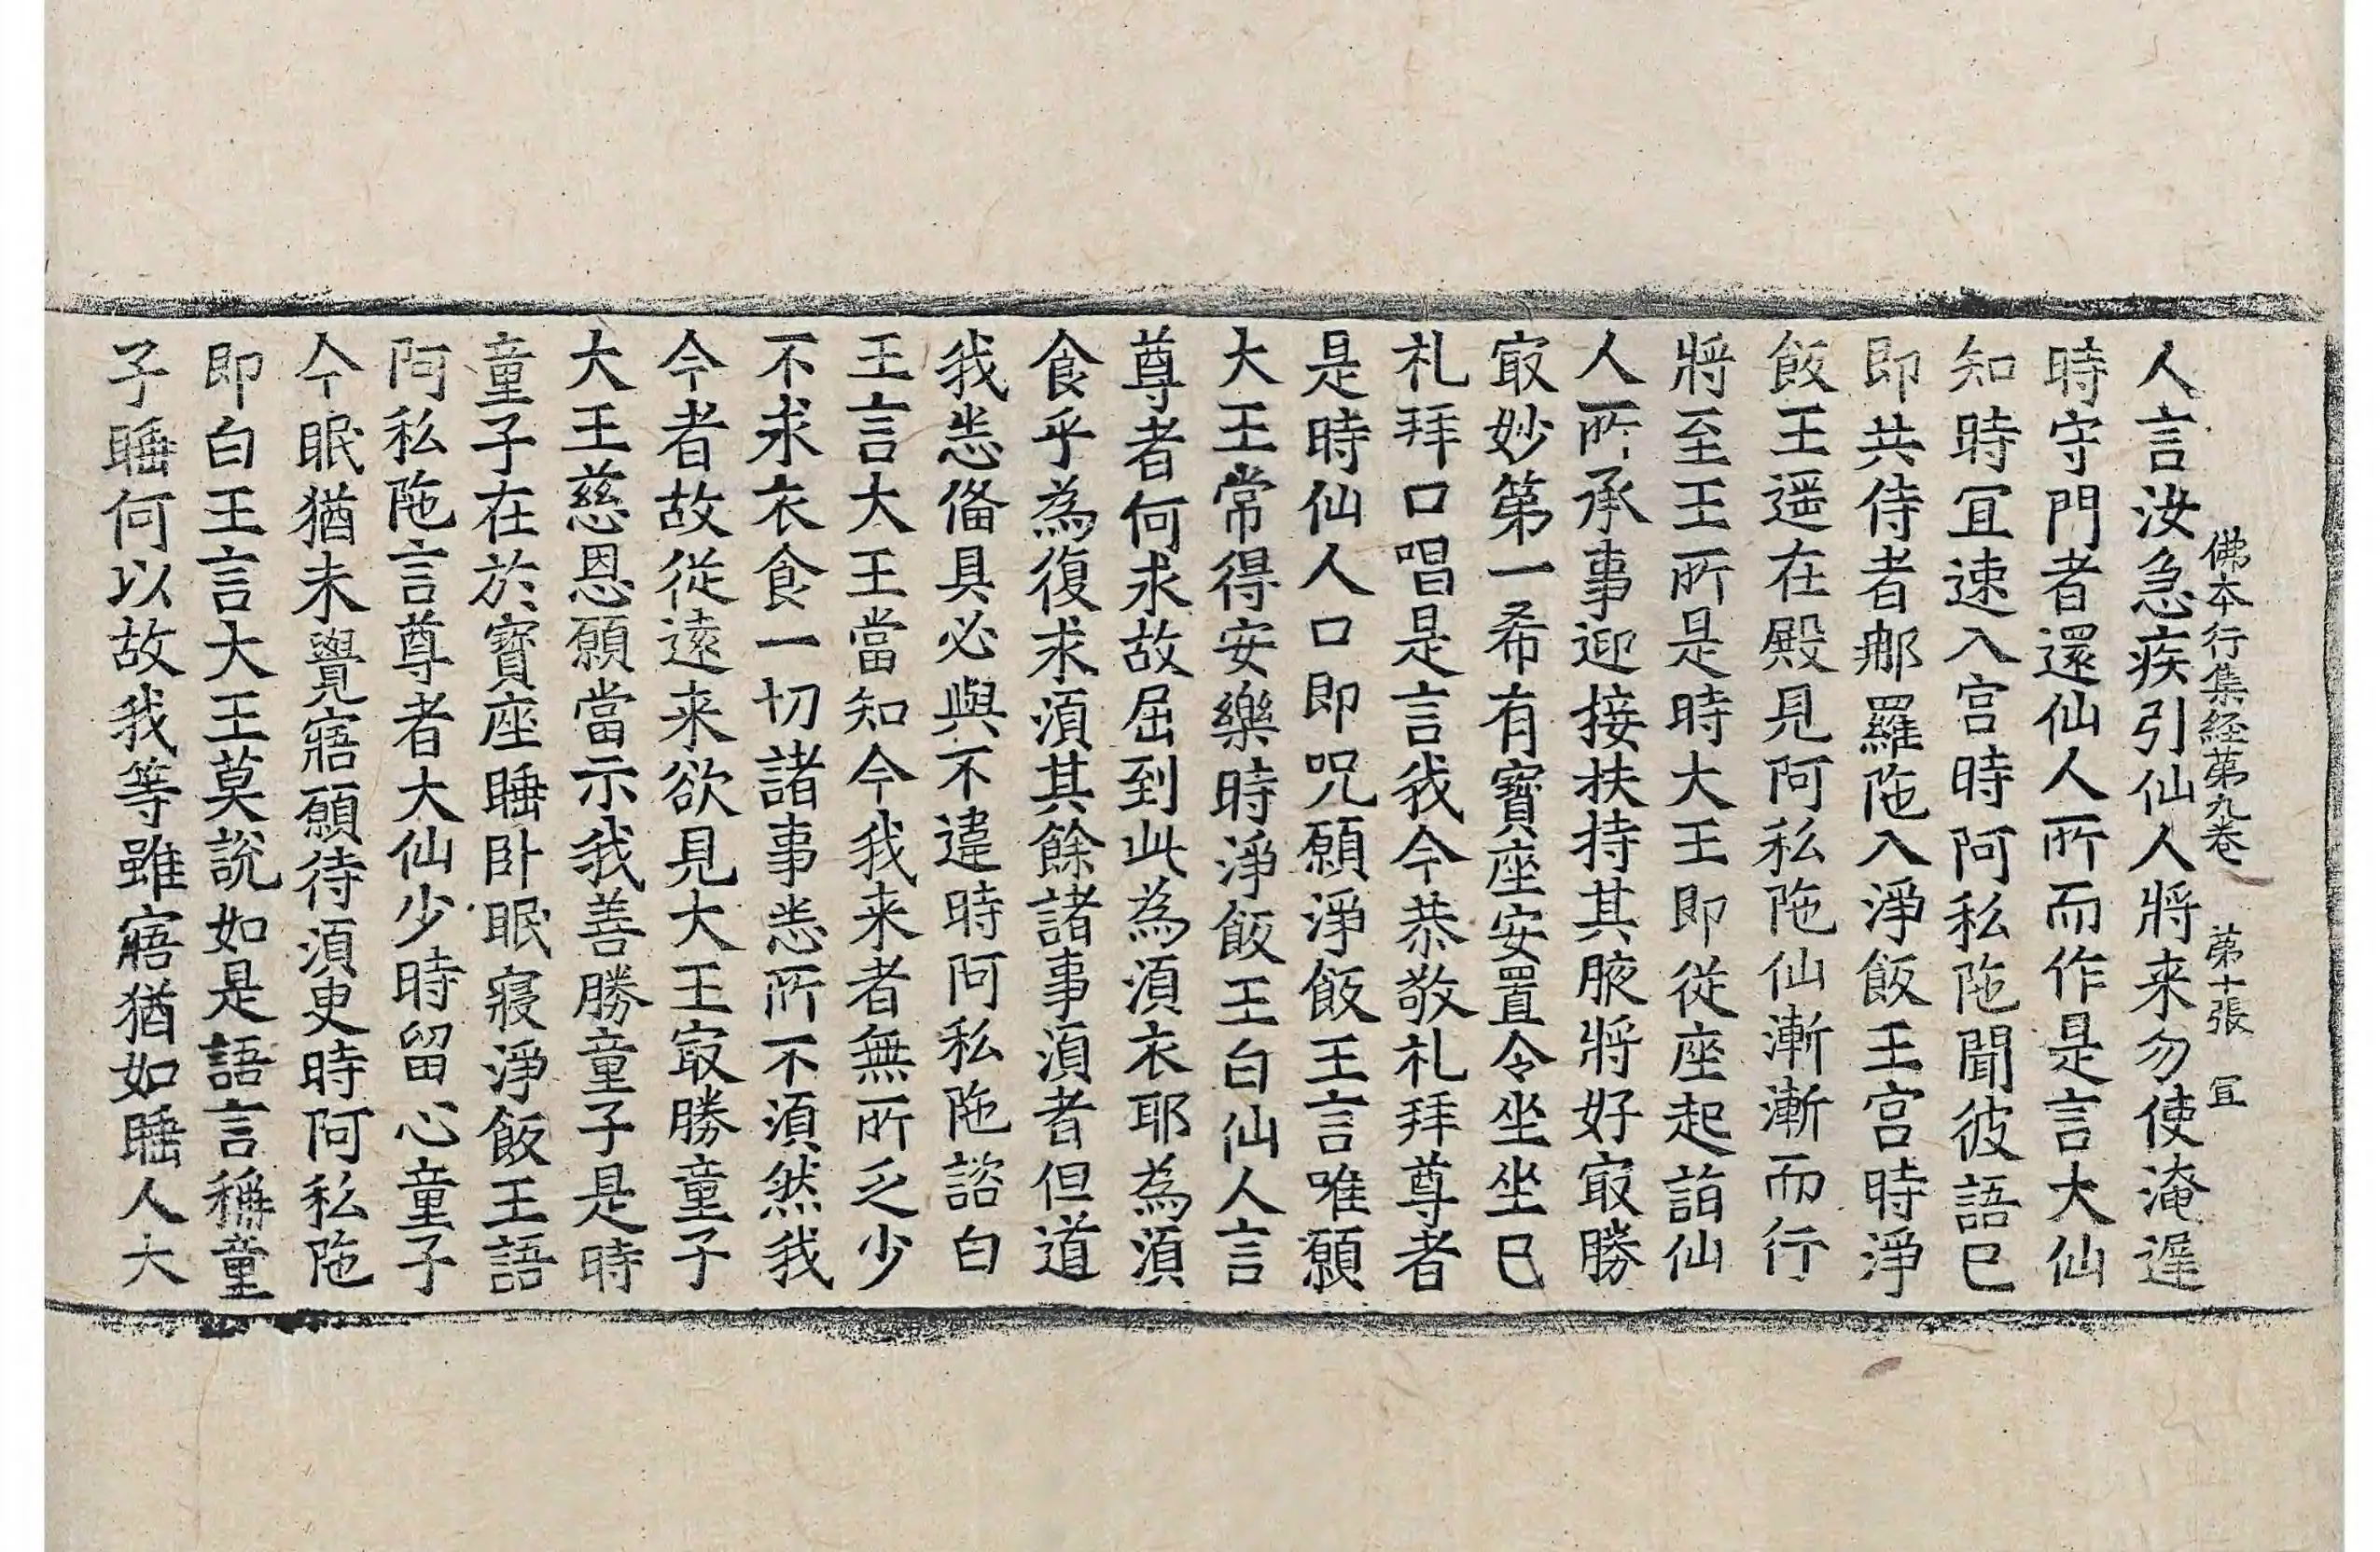 佛本行集経第九卷 第十張 冝
人言汝急疾引仙人將来勿使淹遟
時守門者還仙人所而作是言大仙
知時冝速入宫時阿私陁聞彼語巳
即共侍者𨚗羅陁入淨飯王宫時淨
飯王遥在殿見阿私陁仙漸漸而行
將至王所是時大王即従座起詣仙
人所承事迎接扶持其腋將好㝡勝
㝡妙第一希有寳座安置令坐坐巳
礼拜口唱是言我今恭敬礼拜尊者
是時仙人口即呪願淨飯王言唯願
大王常得安樂時淨飯王白仙人言
尊者何求故屈到此為湏衣耶為湏
食乎為復求湏其餘諸事湏者但道
我悉俻具必與不違時阿私陁諮白
王言大王當知今我来者無所乏少
不求衣食一切諸事悉所不湏然我
今者故従逺来欲見大王㝡勝童子
大王慈恩願當示我善勝童子是時
童子在於寳座睡卧眠寢淨飯王語
阿私陁言尊者大仙少時留心童子
今眠猶未覺寤願待湏臾時阿私陁
即白王言大王莫說如是語言稱童
子睡何以故我等雖寤猶如睡人大